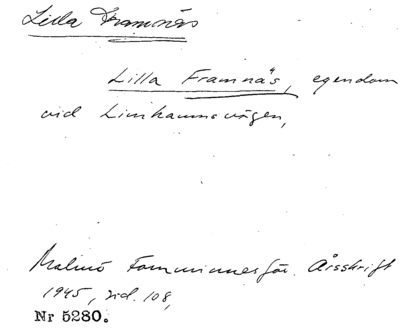 Lilla Framnäs
Lilla Framnäs, egendom
vid Limhamnsvägen,
Malmö Fornminnesför. Årsskrift
1945, sid. 108,
Nr 5280.